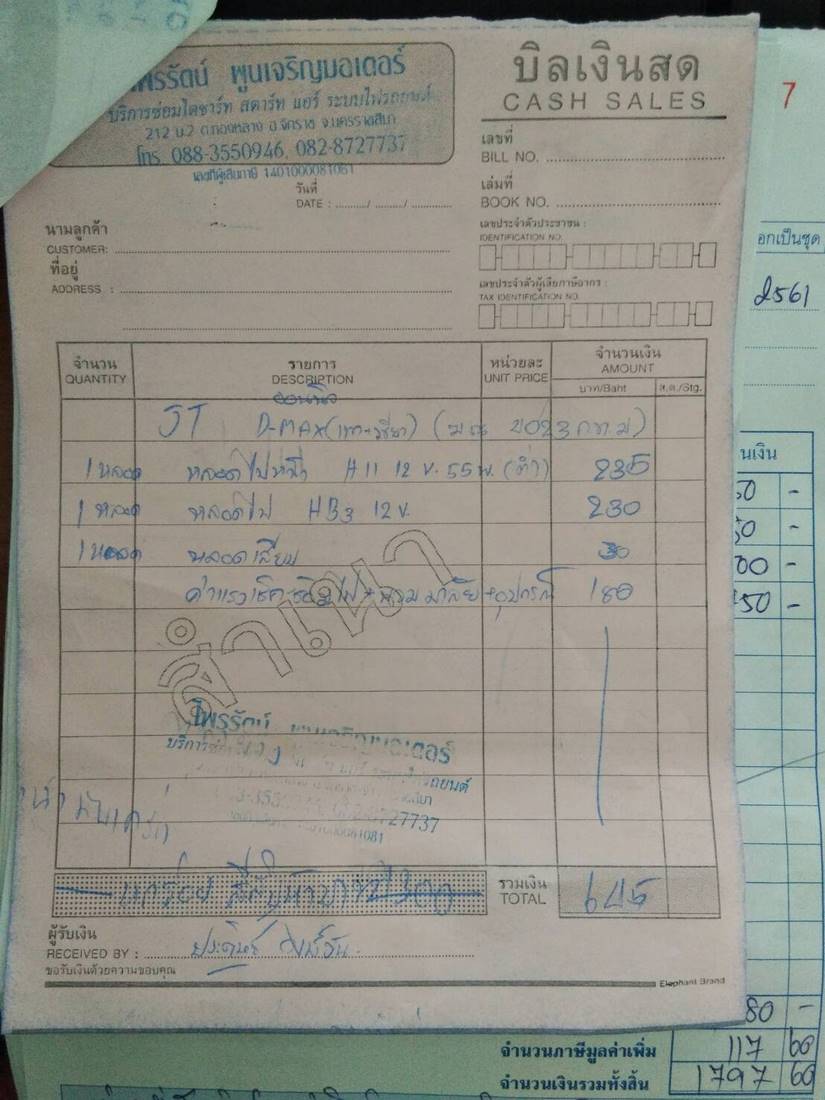 ไพรรัตน์ พูนเจริญมอเตอร์
บริการซ่อมไดชาร์ท สตาร์ท แอร์ ระบบไฟรถยนต์
212 ม.2 ต.ทองหลาง อ.จักราช จ.นครราชสีมา
โทร. 088-3550946, 082-8727737
เลขที่ผู้เสียภาษี 1401000081081
บิลเงินสด
CASH SALES
เลขที่
BILL NO.
เล่มที่
BOOK NO.
วันที่
DATE : / /
นามลูกค้า
CUSTOMER:
ที่อยู่
ADDRESS :
เลขประจำตัวประชาชน :
IDENTIFICATION NO.
เลขประจำตัวผู้เสียภาษีอากร :
TAX IDENTIFICATION NO.
จำนวน รายการ หน่วยละ จำนวนเงิน
QUANTITY DESCRIPTION UNIT PRICE AMOUNT
บาท/Baht ส.ต./Stg.
JT D-MAX (เทา-เขียว) 2023 กทม)
1 หลอด หลอดไฟหน้า H11 12 v. 55 w. (ต่ำ) 235
1 หลอด หลอดไฟ HB3 12 v. 230
1 หลอด หลอดเสียบ 30
ค่าแรงเช็ค ไฟ + มาลัย + อุปกรณ์ 180
สำเนา
ไพรรัตน์ พูนเจริญมอเตอร์
727737
รวมเงิน
TOTAL 645
ผู้รับเงิน
RECEIVED BY :
ขอรับเงินด้วยความขอบคุณ
Elephant Brand
7
อกเป็นชุด
2561
นเงิน
50 -
50 -
00 -
50 -
80 -
จำนวนภาษีมูลค่าเพิ่ม 117 60
จำนวนเงินรวมทั้งสิ้น 1797 60